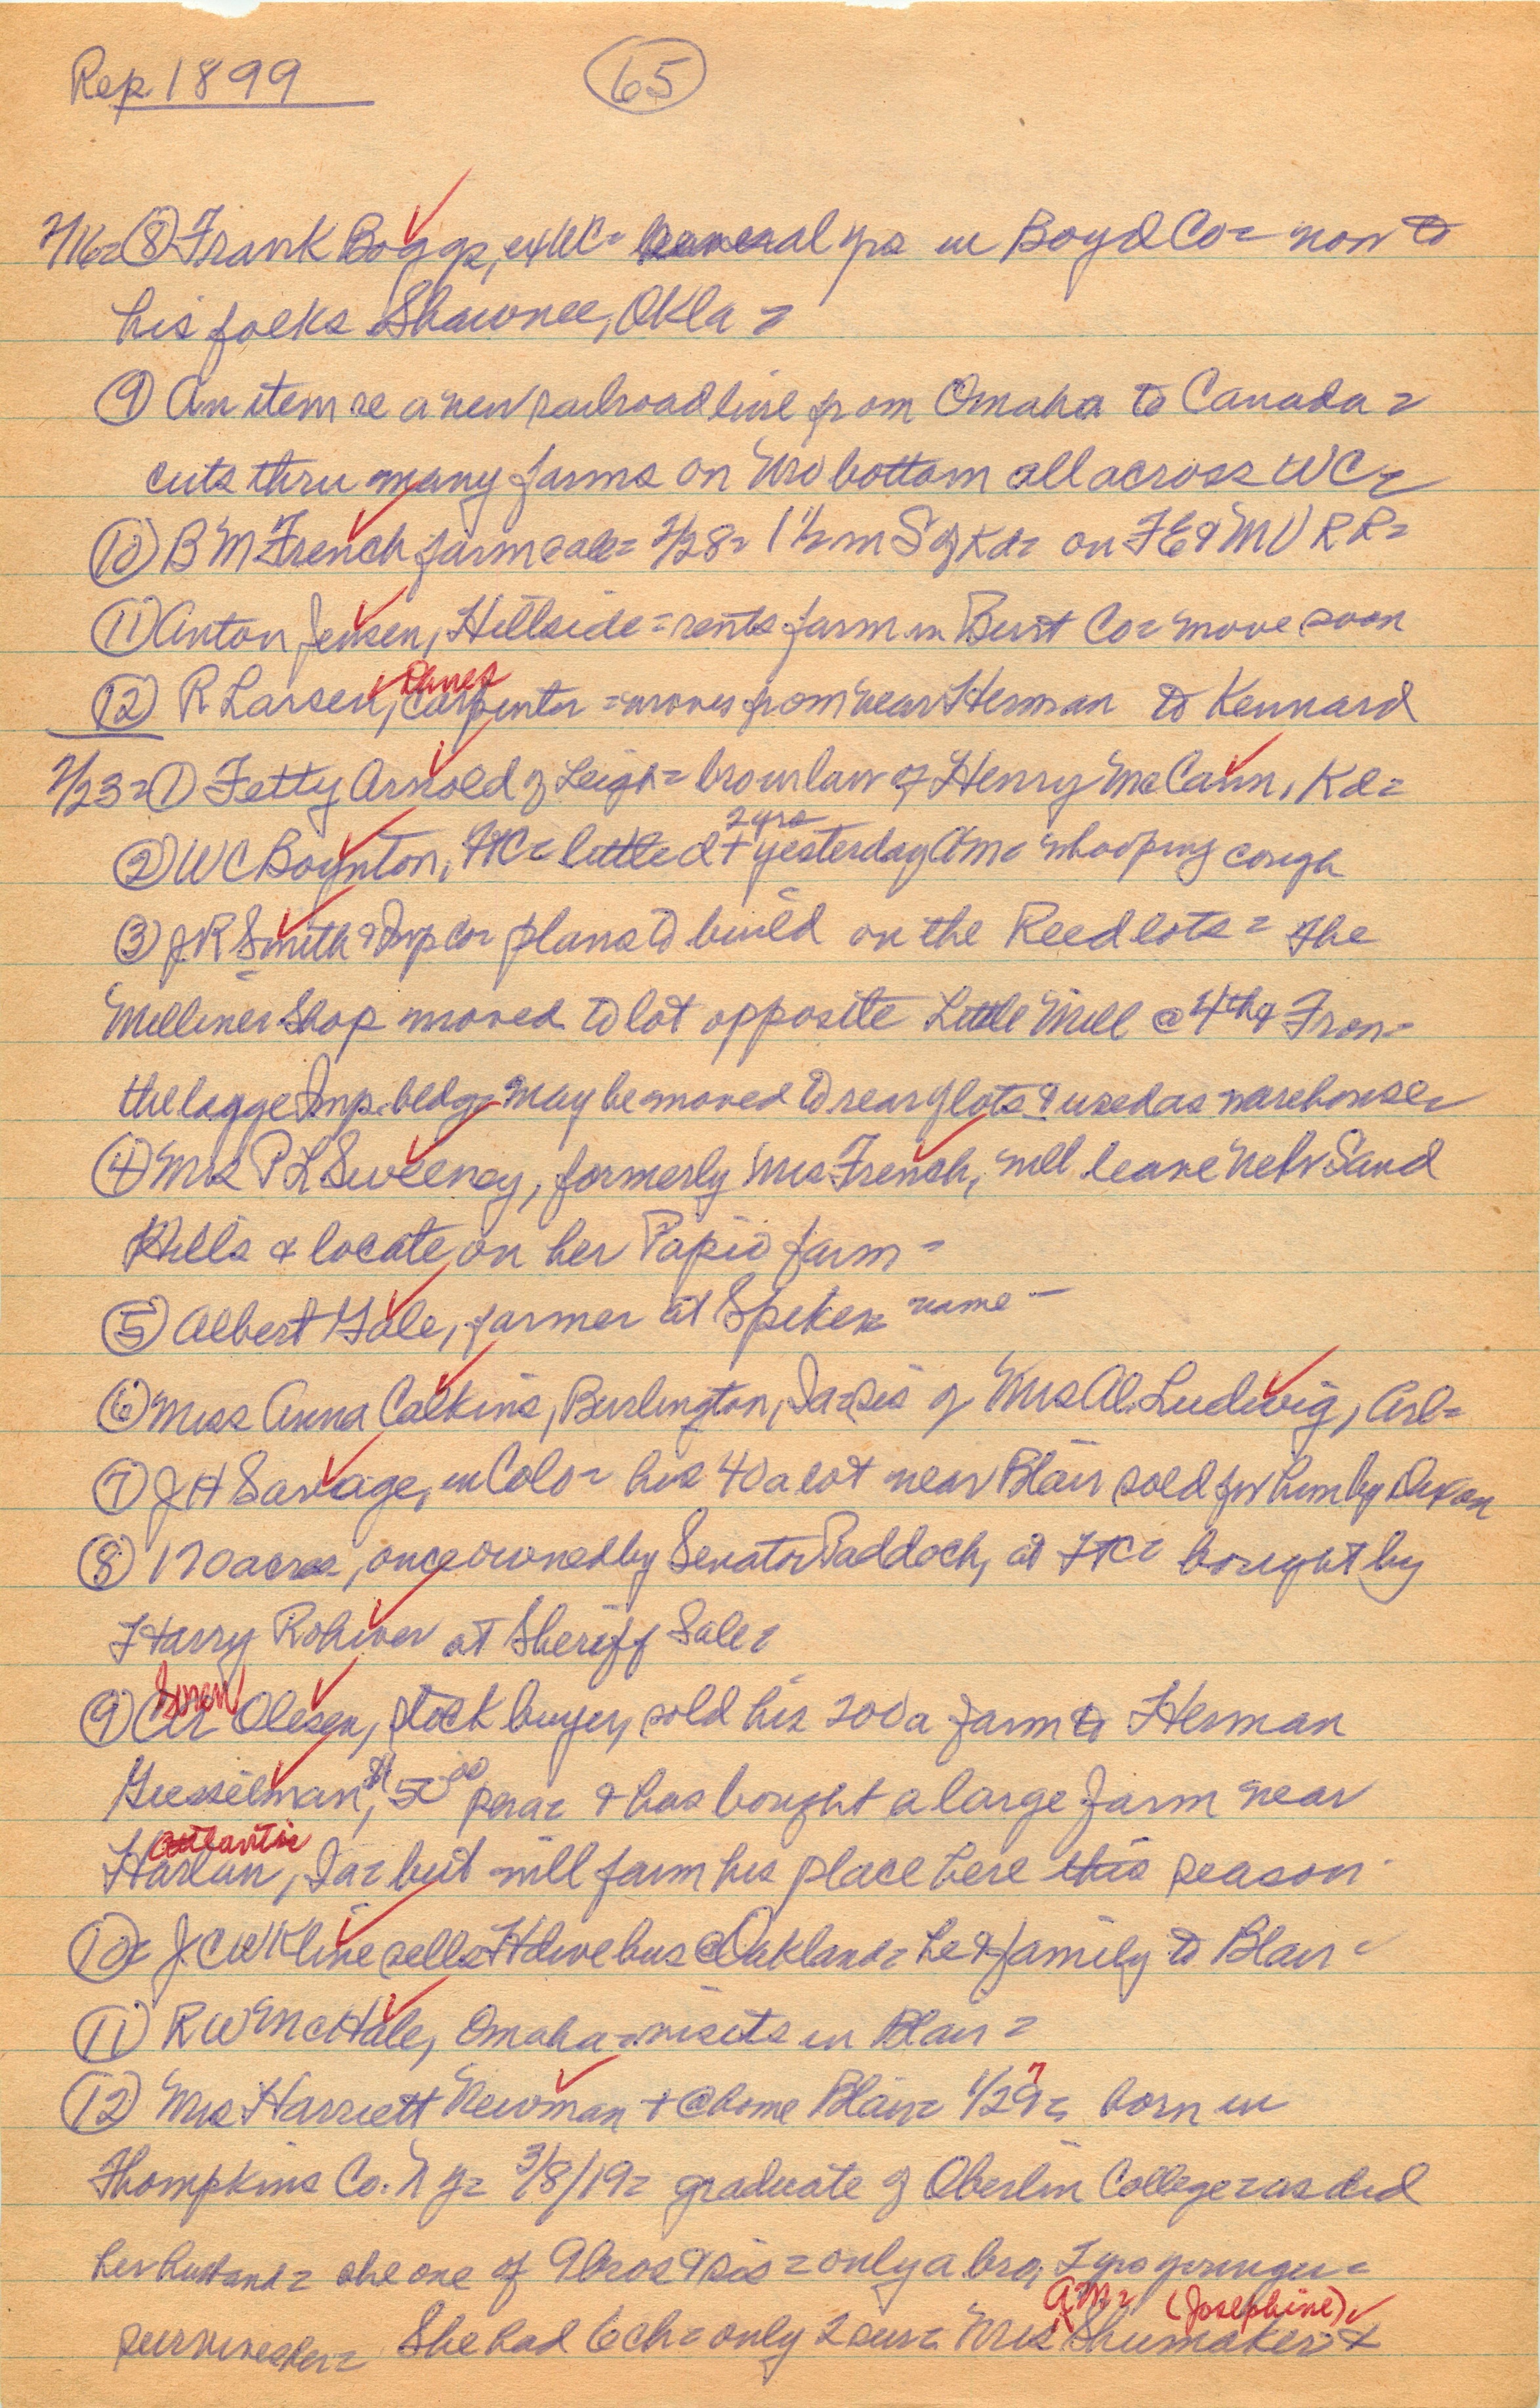 Rep. 1899 65
2/16= (8) Frank Boggs, ex WC= several yrs in Boyd Co= now to
his folks Shawnee, Okla =
(9) An item re a new railroad line from Omaha to Canada =
cuts thru many farms on Mo bottom all across WC=
(10) B M French farm sale= 2/28= 1 1/2 m S of Kd= on FE & MV RR=
(11) Anton Jensen, Hillside = rents farm in Burt Co= move soon
(12) R Larsen, Danes carpenter = moves from near Herman to Kennard
2/23= (1) Fetty Arnold of Leigh= bro in law of Henry McCann, Kd=
(2) WC Boynton, FtC= little d + 2 yrs yesterday Am= whooping cough
(3) JR Smith & Imp Co= plans to build on the Reed lots = the
Milliner Shop moved to lot opposite Little Mill @ 4th & Fron=
the Imp. bldg= may be moved to rear of lots & used as warehouse=
(4) Mrs P L Sweeney, formerly Mrs French, will leave Nebr Sand
Hills & locate on her Papio farm =
(5) Albert Gale, farmer at Spiker name —
(6) Miss Anna Calkins, Burlington, Ia= sis of Mrs Al. Ludwig, Arl=
(7) J H Savage, in Colo= his 40 a lot near Blair sold for him by
(8) 170 acres, once owned by Senator Paddock, at FtC= bought by
Harry Rohwer at Sheriff Sale=
(9) Soren Olesen, stock buyer, sold his 200 a farm to Herman
Gusselman, $50.00 per a= & has bought a large farm near
Atlantic Harlan, Ia= but will farm his place here this season
(10)= J C W Kline sells Hdwe bus @ Oakland= he & family to Blair=
(11) R W McHale, Omaha= visits in Blair =
(12) Mrs Harriett Newman + @ home Blair= 1/29= 7 born in
Thompkins Co. N Y= 3/8/19= graduate of Oberlin College= as did
her husband= she one of 9 bros & sis = only a bro, yrs younger=
survives her= She had 6 ch= only 2 sur= Mrs A M= Shumaker (Josephine) &